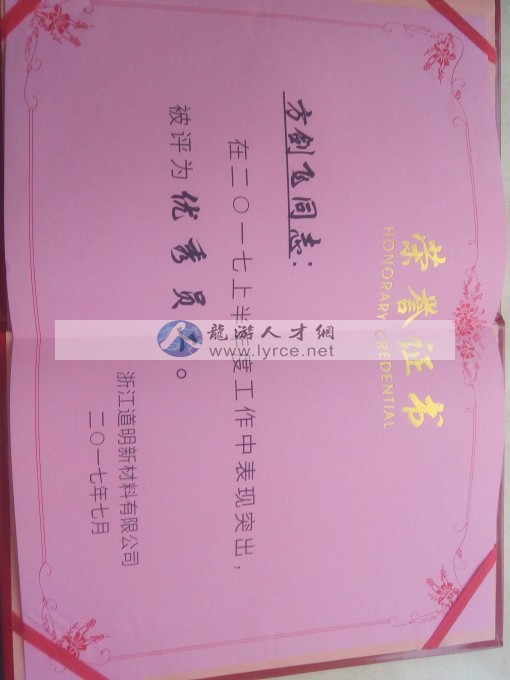 荣誉证书
HONORARY CREDENTIAL
方剑飞同志：
在二〇一七上半年度工作中表现突出，
被评为优秀员。
浙江道明新材料有限公司
二〇一七年七月
龍游人才網
www.lyrce.net